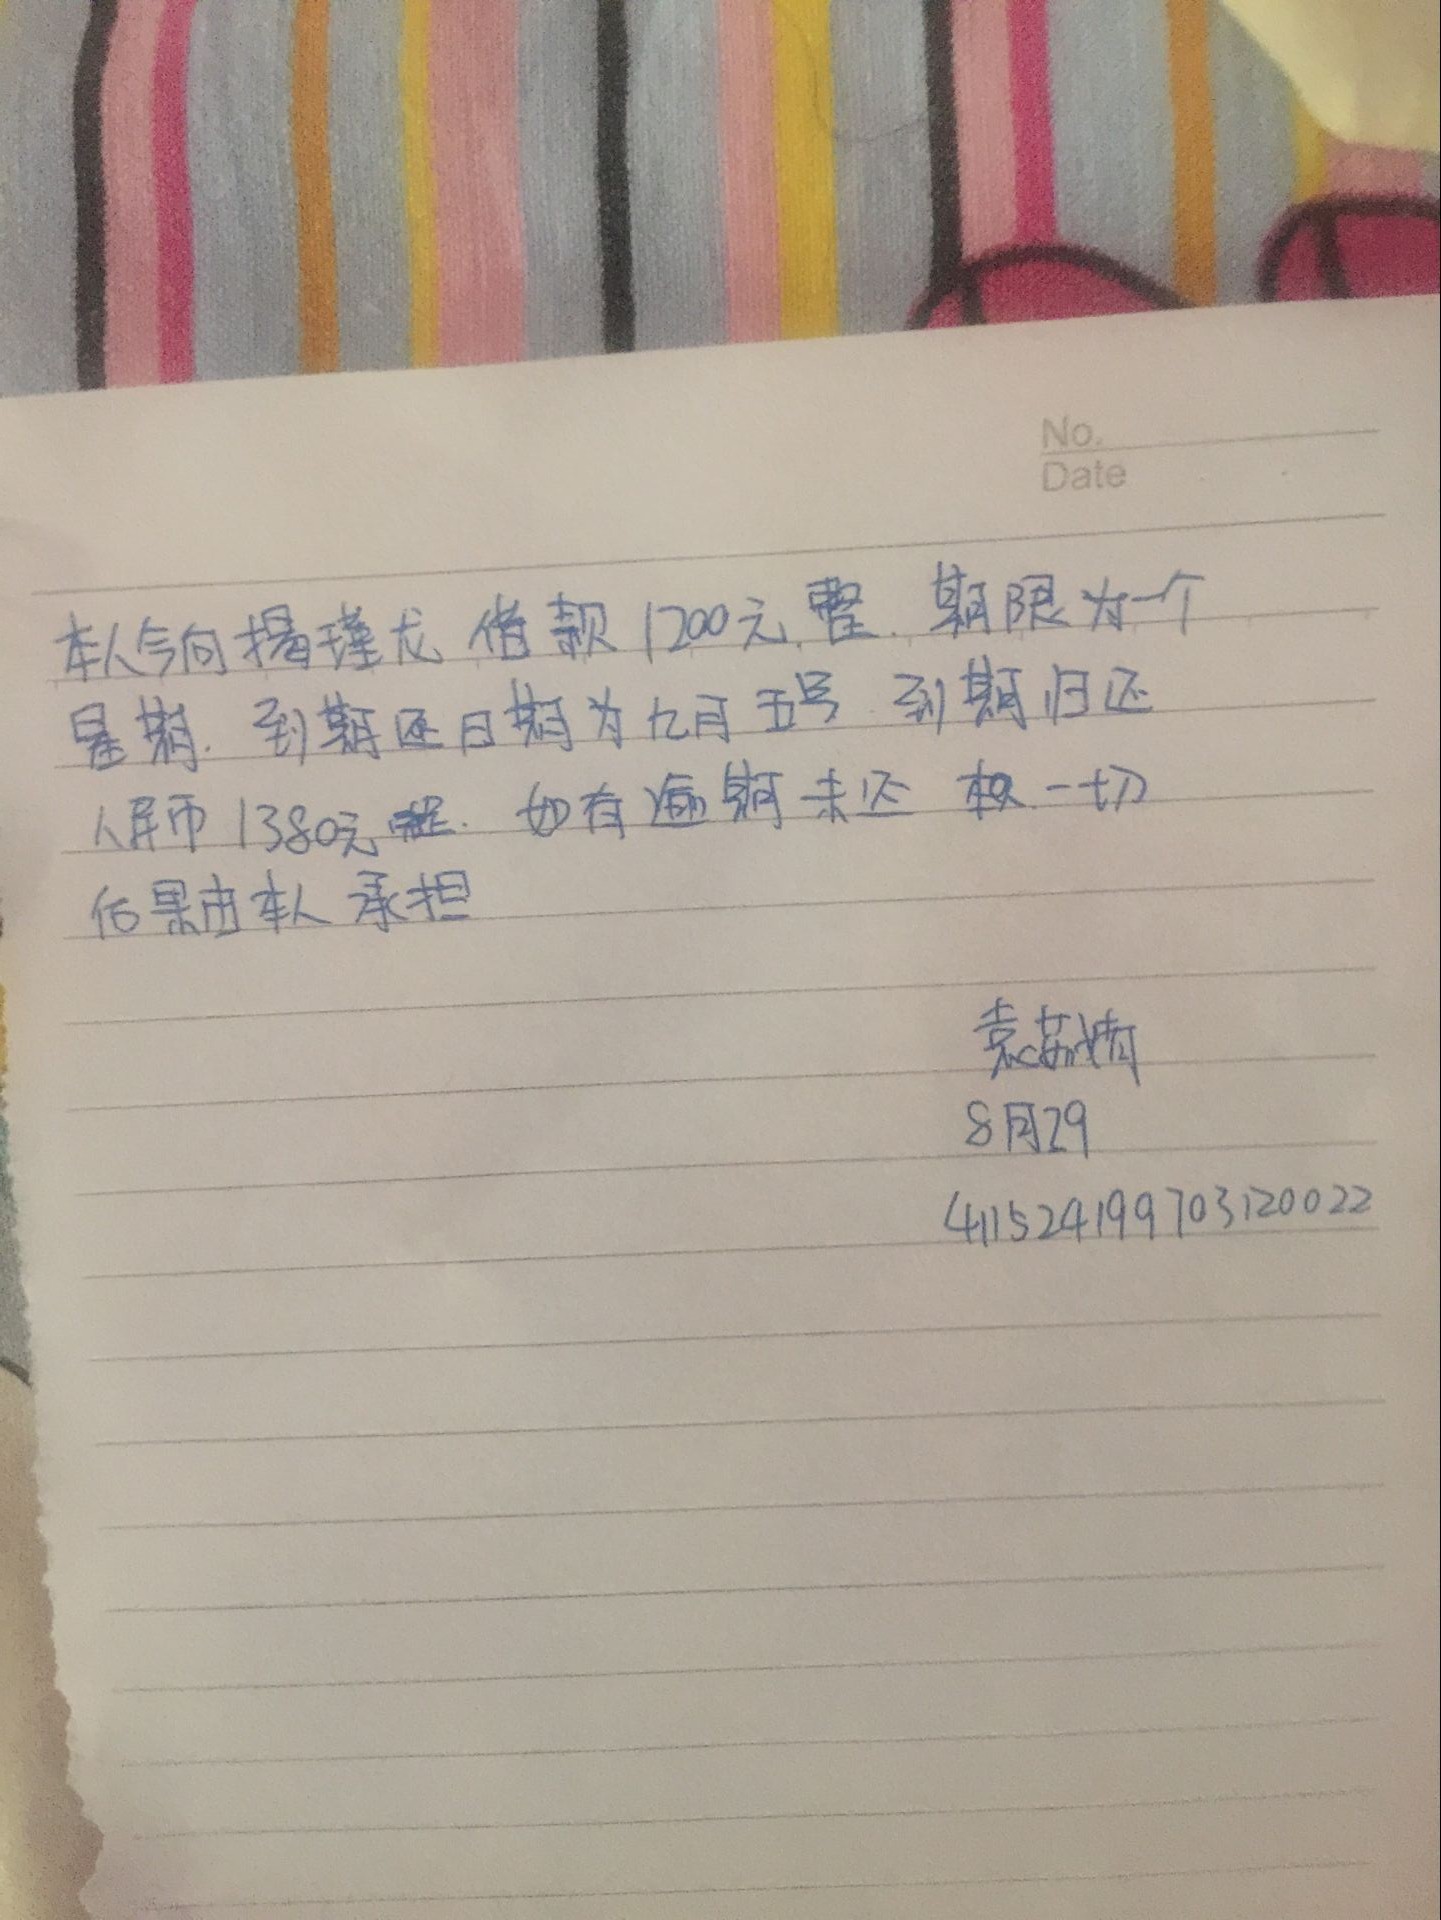 No.
Date
本人今向揚瑾龙 借款 1200元整. 期限为一个
星期. 到期还日期为九月五号 到期归还
人民币 1380元整. 如有逾期未还 一切
后果由本人承担
袁苏婧
8月29
411524199703120022